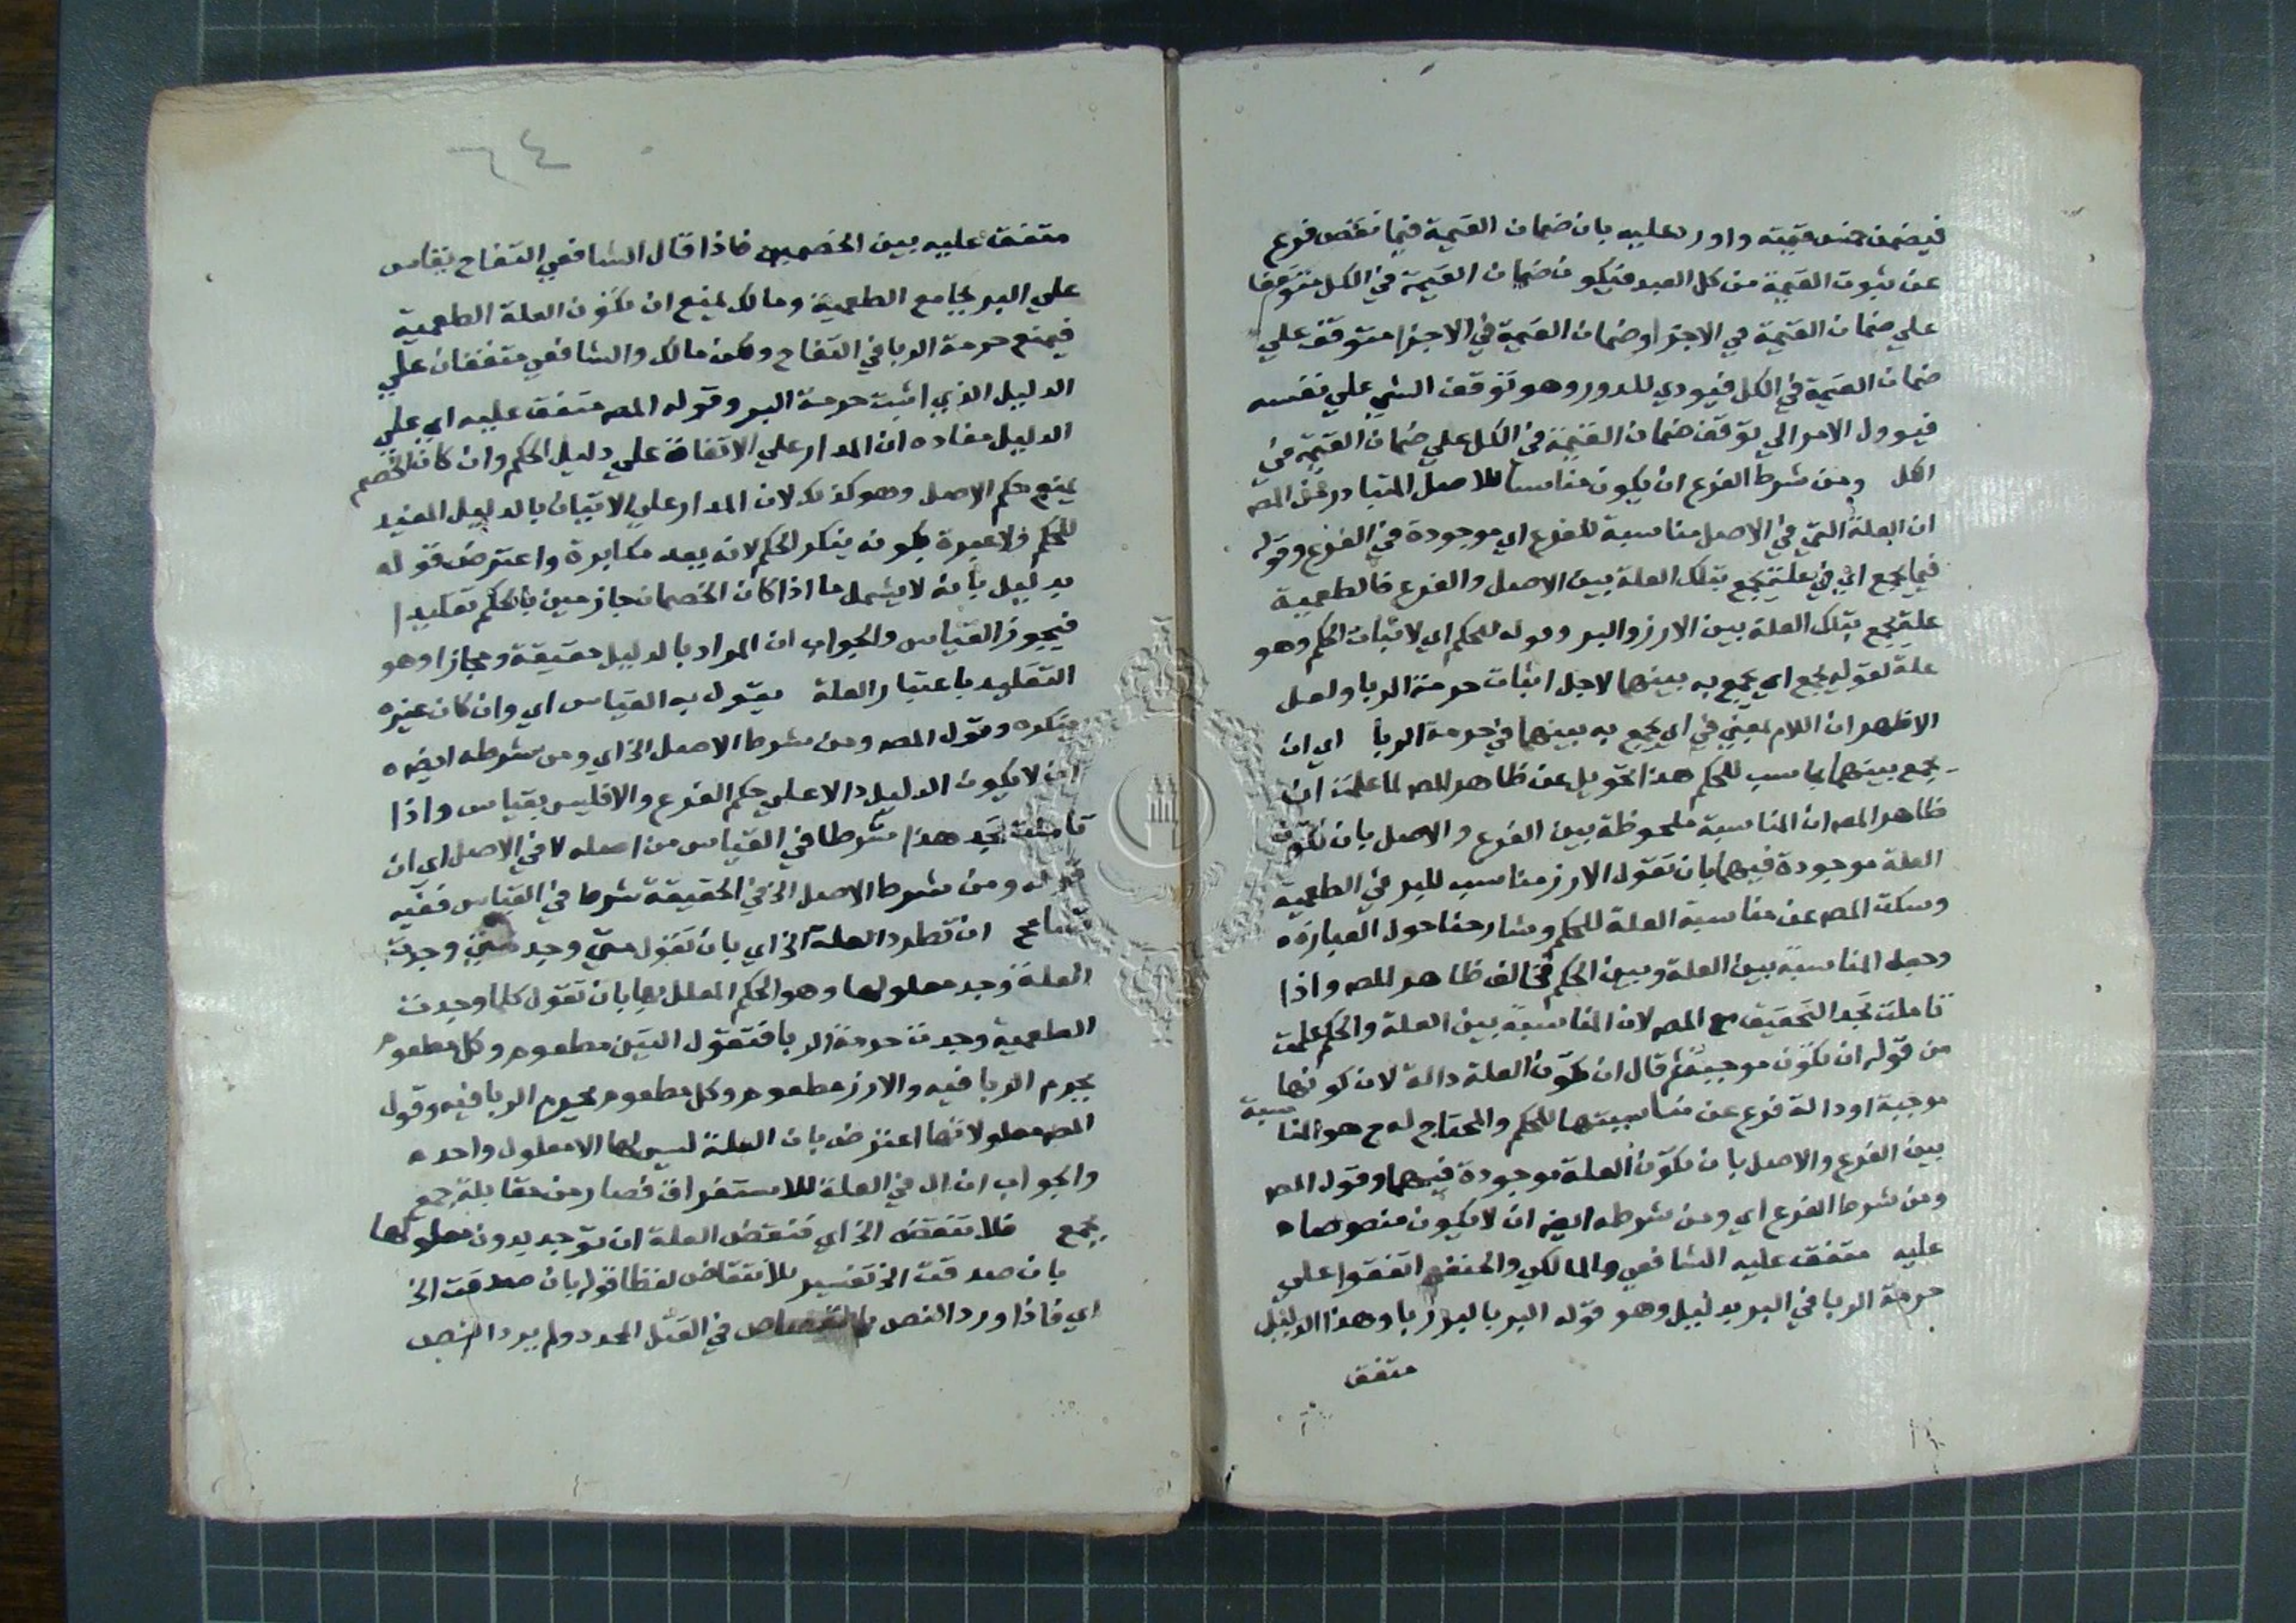 فيضمن خمس قيمته واورد عليه بان ضمان القيمة فيما نقص فرع
عن ثبوت القيمة من كل العبد فيكون ضمان القيمة في الكل متوقفا
علي ضمان القيمة في الاجزا وضمان القيمة في الاجزا متوقف علي
ضمان القيمة في الكل فيودي للدور وهو توقف الشي علي نفسه
فيوول الامر الي توقف ضمان القيمة في الكل علي ضمان القيمة في
الكل ومن شرط الفرع ان يكون مناسبا للاصل المتبادر من المص
ان العلة التي في الاصل مناسبة للفرع اي موجودة في الفرع وقوله
فيما يجمع اي في علة يجمع بتلك العلة بين الاصل والفرع فالطعمية
علة يجمع بتلك العلة بين الارز والبر وقوله للحكم اي لاثبات الحكم وهو
علة لقوله يجمع اي يجمع به بينهما لاجل اثبات حرمة الربا ولعل
الاظهر ان اللام بمعني في اي يجمع به بينهما في حرمة الربا اي ان
يجمع بينهما بمناسب للحكم هذا تحويل عن ظاهر المص لما علمت ان
ظاهر المص ان المناسبة ملحوظة بين الفرع والاصل بان تكون
العلة موجودة فيهما بان تقول الارز مناسب للبر في الطعمية
وسكت المص عن مناسبة العلة للحكم وشارحنا حول العبارة
وجعل المناسبة بين العلة وبين الحكم فخالف ظاهر المص واذا
تاملت تجد التحقيق مع المص لان المناسبة بين العلة والحكم علمت
من قوله ان تكون موجبة ثم قال ان تكون العلة دالة لان كونها
موجبة او دالة فرع عن مناسبتها للحكم والمحتاج له ح هو المناسبة
بين الفرع والاصل بان تكون العلة موجودة فيهما وقول المص
ومن شرط الفرع اي ومن شرطه ايضا ان لا يكون منصوصا
عليه متفق عليه الشافعي والمالكي والحنفي اتفقوا علي
حرمة الربا في البر بدليل وهو قوله البر بالبر ربا وهذا الدليل
متفق
٦٤
متفق عليه بين الخصمين فاذا قال الشافعي التفاح يقاس
علي البر بجامع الطعمية ومالك يمنع ان تكون العلة الطعمية
فيمنع حرمة الربا في التفاح ولكن مالك والشافعي متفقان علي
الدليل الذي اثبت حرمة البر وقوله المص متفق عليه اي علي
الدليل مفاده ان المدار علي الاتفاق علي دليل الحكم وان كان الخصم
يمنع حكم الاصل وهو كذلك لان المدار علي الاتيان بالدليل المفيد
للحكم ولا عبرة بكونه ينكر الحكم لانه يعد مكابرة واعترض قوله
بدليل بانه لا يشمل ما اذا كان الخصمان جازمين بالحكم تقليدا
فيجوز القياس والجواب ان المراد بالدليل حقيقة ومجازا وهو
التقليد باعتبار العلة يقول به القياس اي وان كان غيره
ينكره وقول المص ومن شرط الاصل الخ اي ومن شرطه ايضا
ان لا يكون الدليل دالا علي حكم الفرع والا فليس بقياس واذا
تاملت تجد هذا شرطا في القياس من اصله لا في الاصل اي ان
قوله ومن شرط الاصل الخ في الحقيقة شرط في القياس ففيه
تسامح ان تطرد العلة الخ اي بان تقول متي وجد وجدت
العلة وجد معلولها وهو الحكم المعلل بها بان تقول كلما وجدت
الطعمية وجدت حرمة الربا فتقول التين مطعوم وكل مطعوم
يحرم الربا فيه والارز مطعوم وكل مطعوم يحرم الربا فيه وقول
المص معلولاتها اعترض بان العلة ليس لها الا معلول واحد
والجواب ان ال في العلة للاستغراق فصار من مقابلة جمع
بجمع فلا تنتقض الخ اي فنقض العلة ان توجد بدون معلولها
بان صدقت الخ تفسير للانتقاض لفظا قوله بان صدقت الخ
اي فاذا ورد النص بالقصاص في القتل المحدد ولم يرد النص